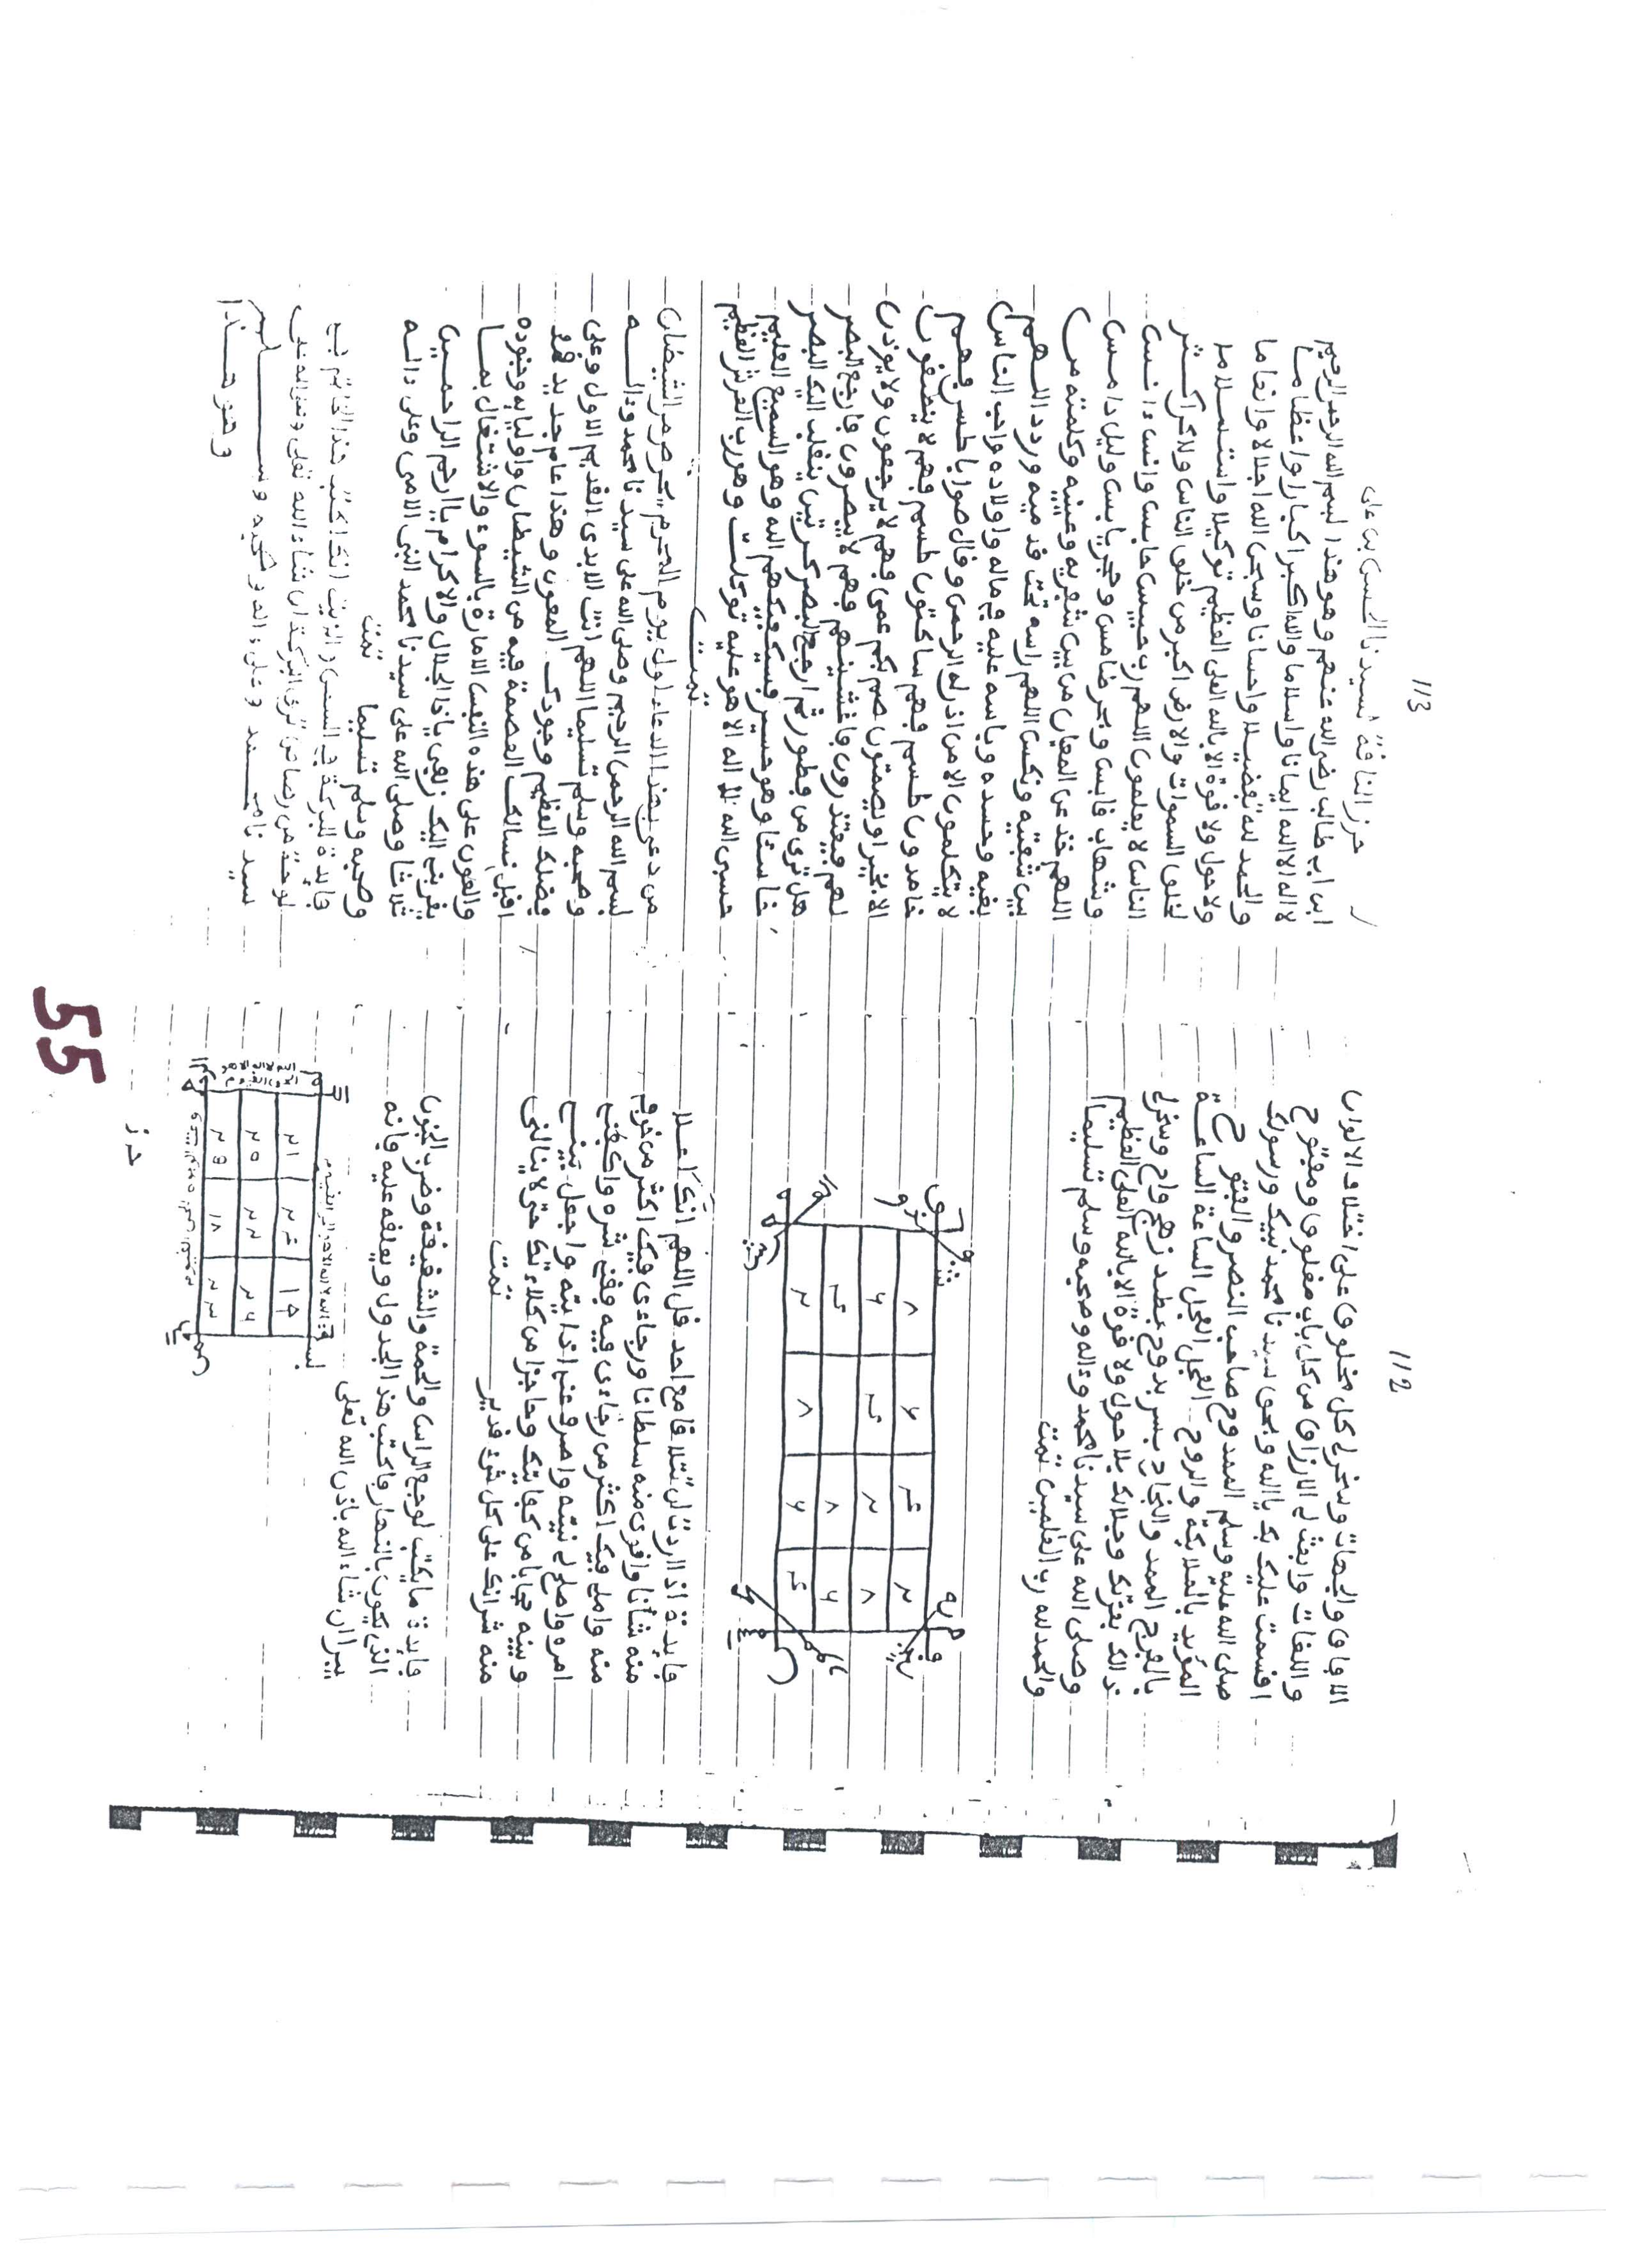 112
الافاق والجهات وسخر لى كل مخلوق على اختلاف الالوان
واللغات وابعث لى الارزاق من كل باب مغلوق ومفتوح
اقسمت عليك بك ياالله وبحق سيدنا محمد نبيك ورسولك
صلى الله عليه وسلم الممدوح صاحب النصر والفتوح
المؤيد بالملايكة والروح العجل العجل الساعة الساعة
بالفرج المدد والنجاد بسر بدوح بطد زهج واح وسخرلى
ذالك بعزتك وجلالك بلا حول ولا قوة الا بالله العلى العظيم
وصلى الله على سيدنا محمد وءاله وصحبه وسلم تسليما
والحمد لله رب العلمين تمت
٨ ٦ ٤ ٢
٦ ٤ ٢ ٨
٤ ٢ ٨ ٦
٢ ٨ ٦ ٤
فايدة اذا اردت ان تتلاقا مع احد قل اللهم انك اعلا
منه شانا واقوى منه سلطانا ورجاءى فيك اكثر من خوفى
منه واملى فيك اكثر من رجاءى فيه فقنى شره واكفنى
امره واصلح لى نيته واصرف عنى اذايته واجعل بينى
وبينه حجابا من كفايتك وحاجزا من كلاءتك حتى لا ينالنى
منه شر انك على كل شىء قدير تمت
فايدة ما يكتب لوجع الراس والحمة والشقيقة وضرب الجنون
الذى يكون بالنهار فاكتب هذا الجدول ويعلقه عليه فانه
يبرا ان شاء الله باذن الله تعلى
٢١ ٢٥ ٢٩
٢٤ ٢٢ ١٨
حرز
113
حرز النافقة لسيدنا الحسين بن على
ابن ابى طالب رضى الله عنهم وهو هذا بسم الله الرحمن الرحيم
لا اله الا الله ايمانا واسلاما والله اكبر اكبارا واعظاما
والحمد لله تفضيلا واحسانا وسبحن الله اجلالا وانعاما
ولا حول ولا قوة الا بالله العلى العظيم توكيلا واستسلاما
لخلق السموات والارض اكبر من خلق الناس ولاكن اكثر
الناس لا يعلمون اللهم رب حبيس حابس وانس ءانس
وشهاب قابس وبحر ضامس وحجر يابس وليل دامس
اللهم خذ عن المعيان من بين شفريه وعينيه وكلمته من
بين شفتيه ونكس اللهم راسه تحت قدميه ورد اللهم
بغيه وحسده وباسه عليه فى ماله واولاده واحب الناس
لا يتكلمون الا من اذن له الرحمن وقال صوابا طسم فهم
خامدون طسم فهم ساكتون طسم فهم لا ينطقون
الا بخير او ليصمتون صم بكم عمى فهم لا يرجعون ولا يوذن
لهم فيعتذرون فاغشينهم فهم لا يبصرون فارجع البصر
هل ترى من فطور ثم ارجع البصر كرتين ينقلب اليك البصر
خاسئا وهو حسير فسيكفيكهم الله وهو السميع العليم
حسبى الله لا اله الا هو عليه توكلت وهو رب العرش العظيم
تمت
من دعى بهذا الدعاء اول يوم المحرم يحرص من الشيطان
بسم الله الرحمن الرحيم وصلى الله على سيدنا محمد وءاله
وصحبه وسلم تسليما اللهم انت الابدى القديم الاول وعلى
فضلك العظيم وجودك المعول وهذا عام جديد قد
اقبل نسالك العصمة فيه من الشيطان واوليايه وجنوده
والعون على هذه النفس الامارة بالسوء والاشتغال بما
يقربنى اليك زلفى ياذا الجلال والاكرام ياارحم الراحمين
ثلاثا وصلى الله على سيدنا محمد النبى الامى وعلى ءاله
وصحبه وسلم تسليما تمت
وهو هذا
55